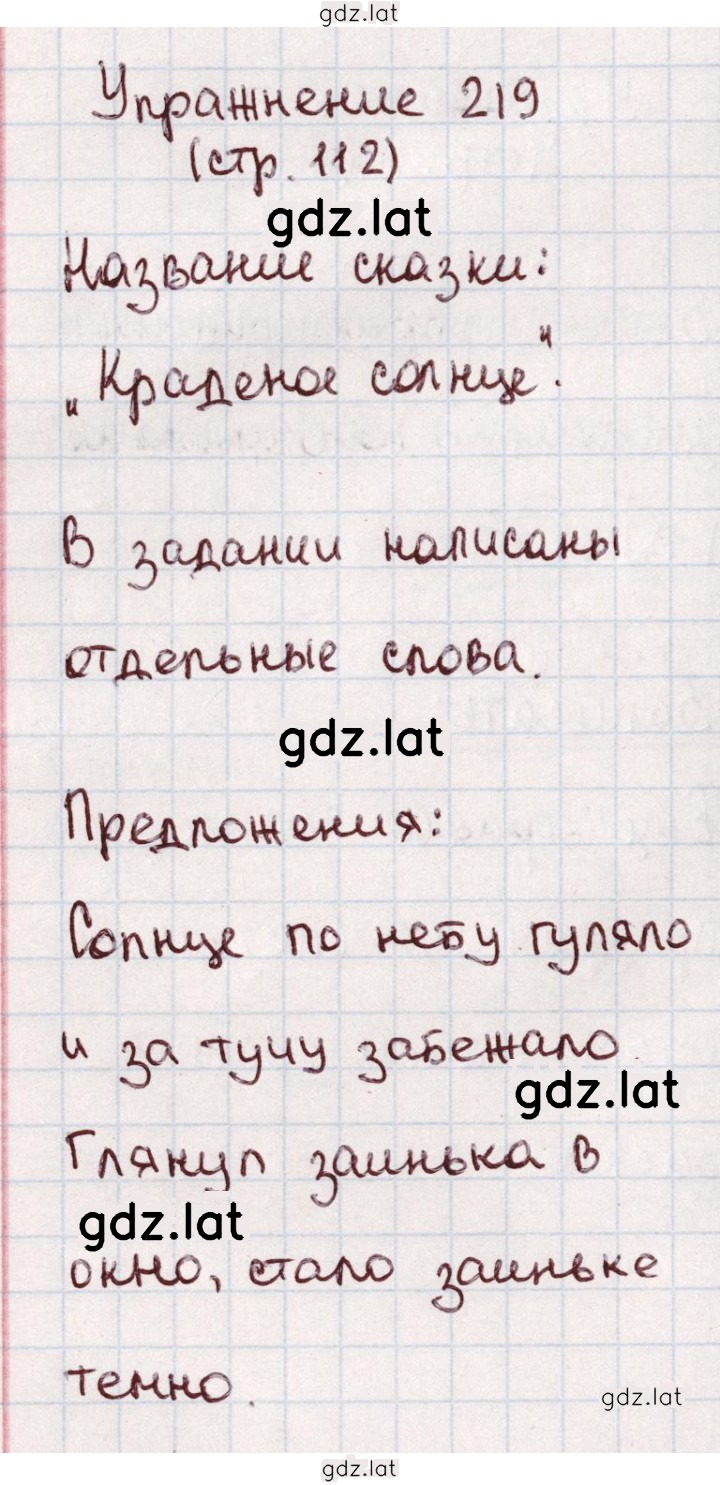 gdz.lat
Упражнение 219
(стр. 112)
gdz.lat
Название сказки:
„Краденое солнце".
В задании написаны
отдельные слова.
gdz.lat
Предложения:
Солнце по небу гуляло
и за тучу забежало.
gdz.lat
Глянул заинька в
gdz.lat
окно, стало заиньке
темно.
gdz.lat
gdz.lat